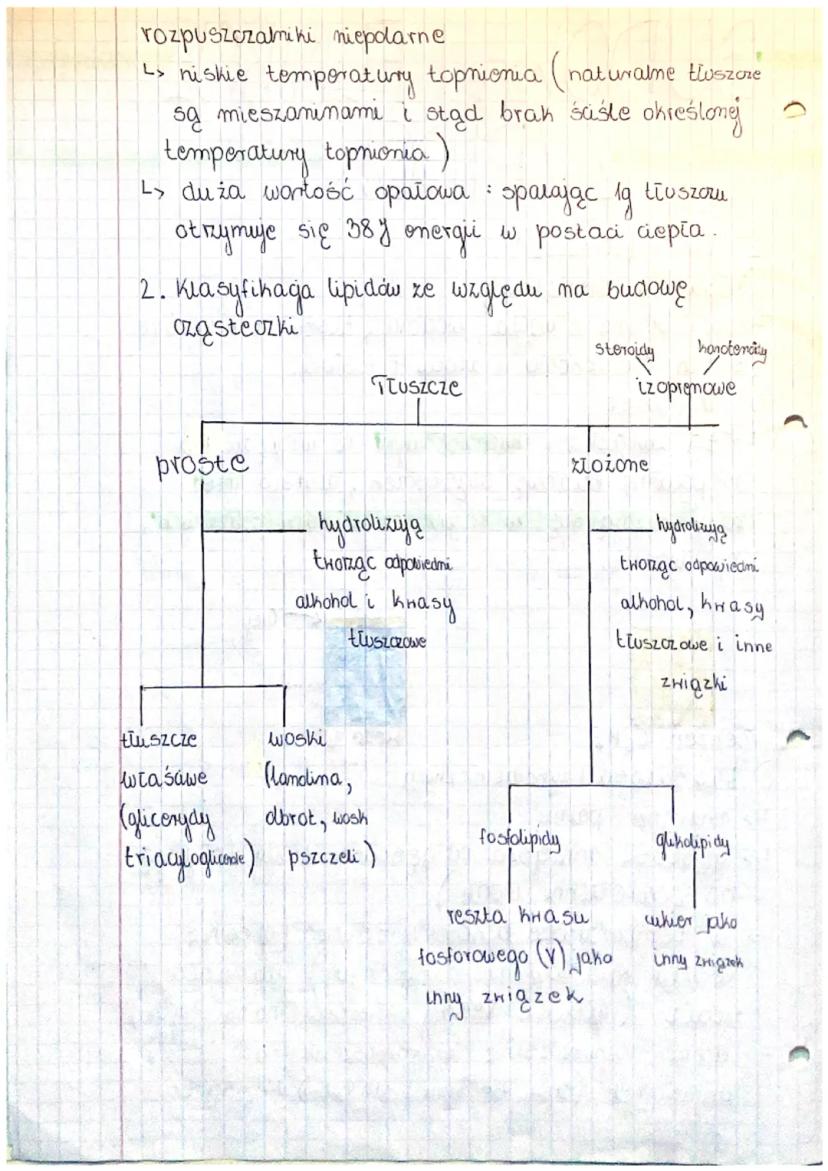 rozpuszczalniki niepolarne
↳ niskie temperatury topnienia (naturalne tłuszcze
są mieszaninami i stąd brak ściśle określonej
temperatury topnienia)
↳ duża wartość opałowa : spalając 1g tłuszczu
otrzymuje się 38 J energii w postaci ciepła.
2. Klasyfikacja lipidów ze względu na budowę
cząsteczki
steroidy karotenoidy
Tłuszcze izoprenowe
proste złożone
hydrolizują
tworząc odpowiedni
alkohol i kwasy
tłuszczowe
hydrolizują
tworząc odpowiedni
alkohol, kwasy
tłuszczowe i inne
związki
tłuszcze
właściwe
(glicerydy
triacyloglicerole)
woski
(lanolina,
olbrot, wosk
pszczeli)
fosfolipidy
reszta kwasu
fosforowego (V) jako
inny związek
glikolipidy
cukier jako
inny związek